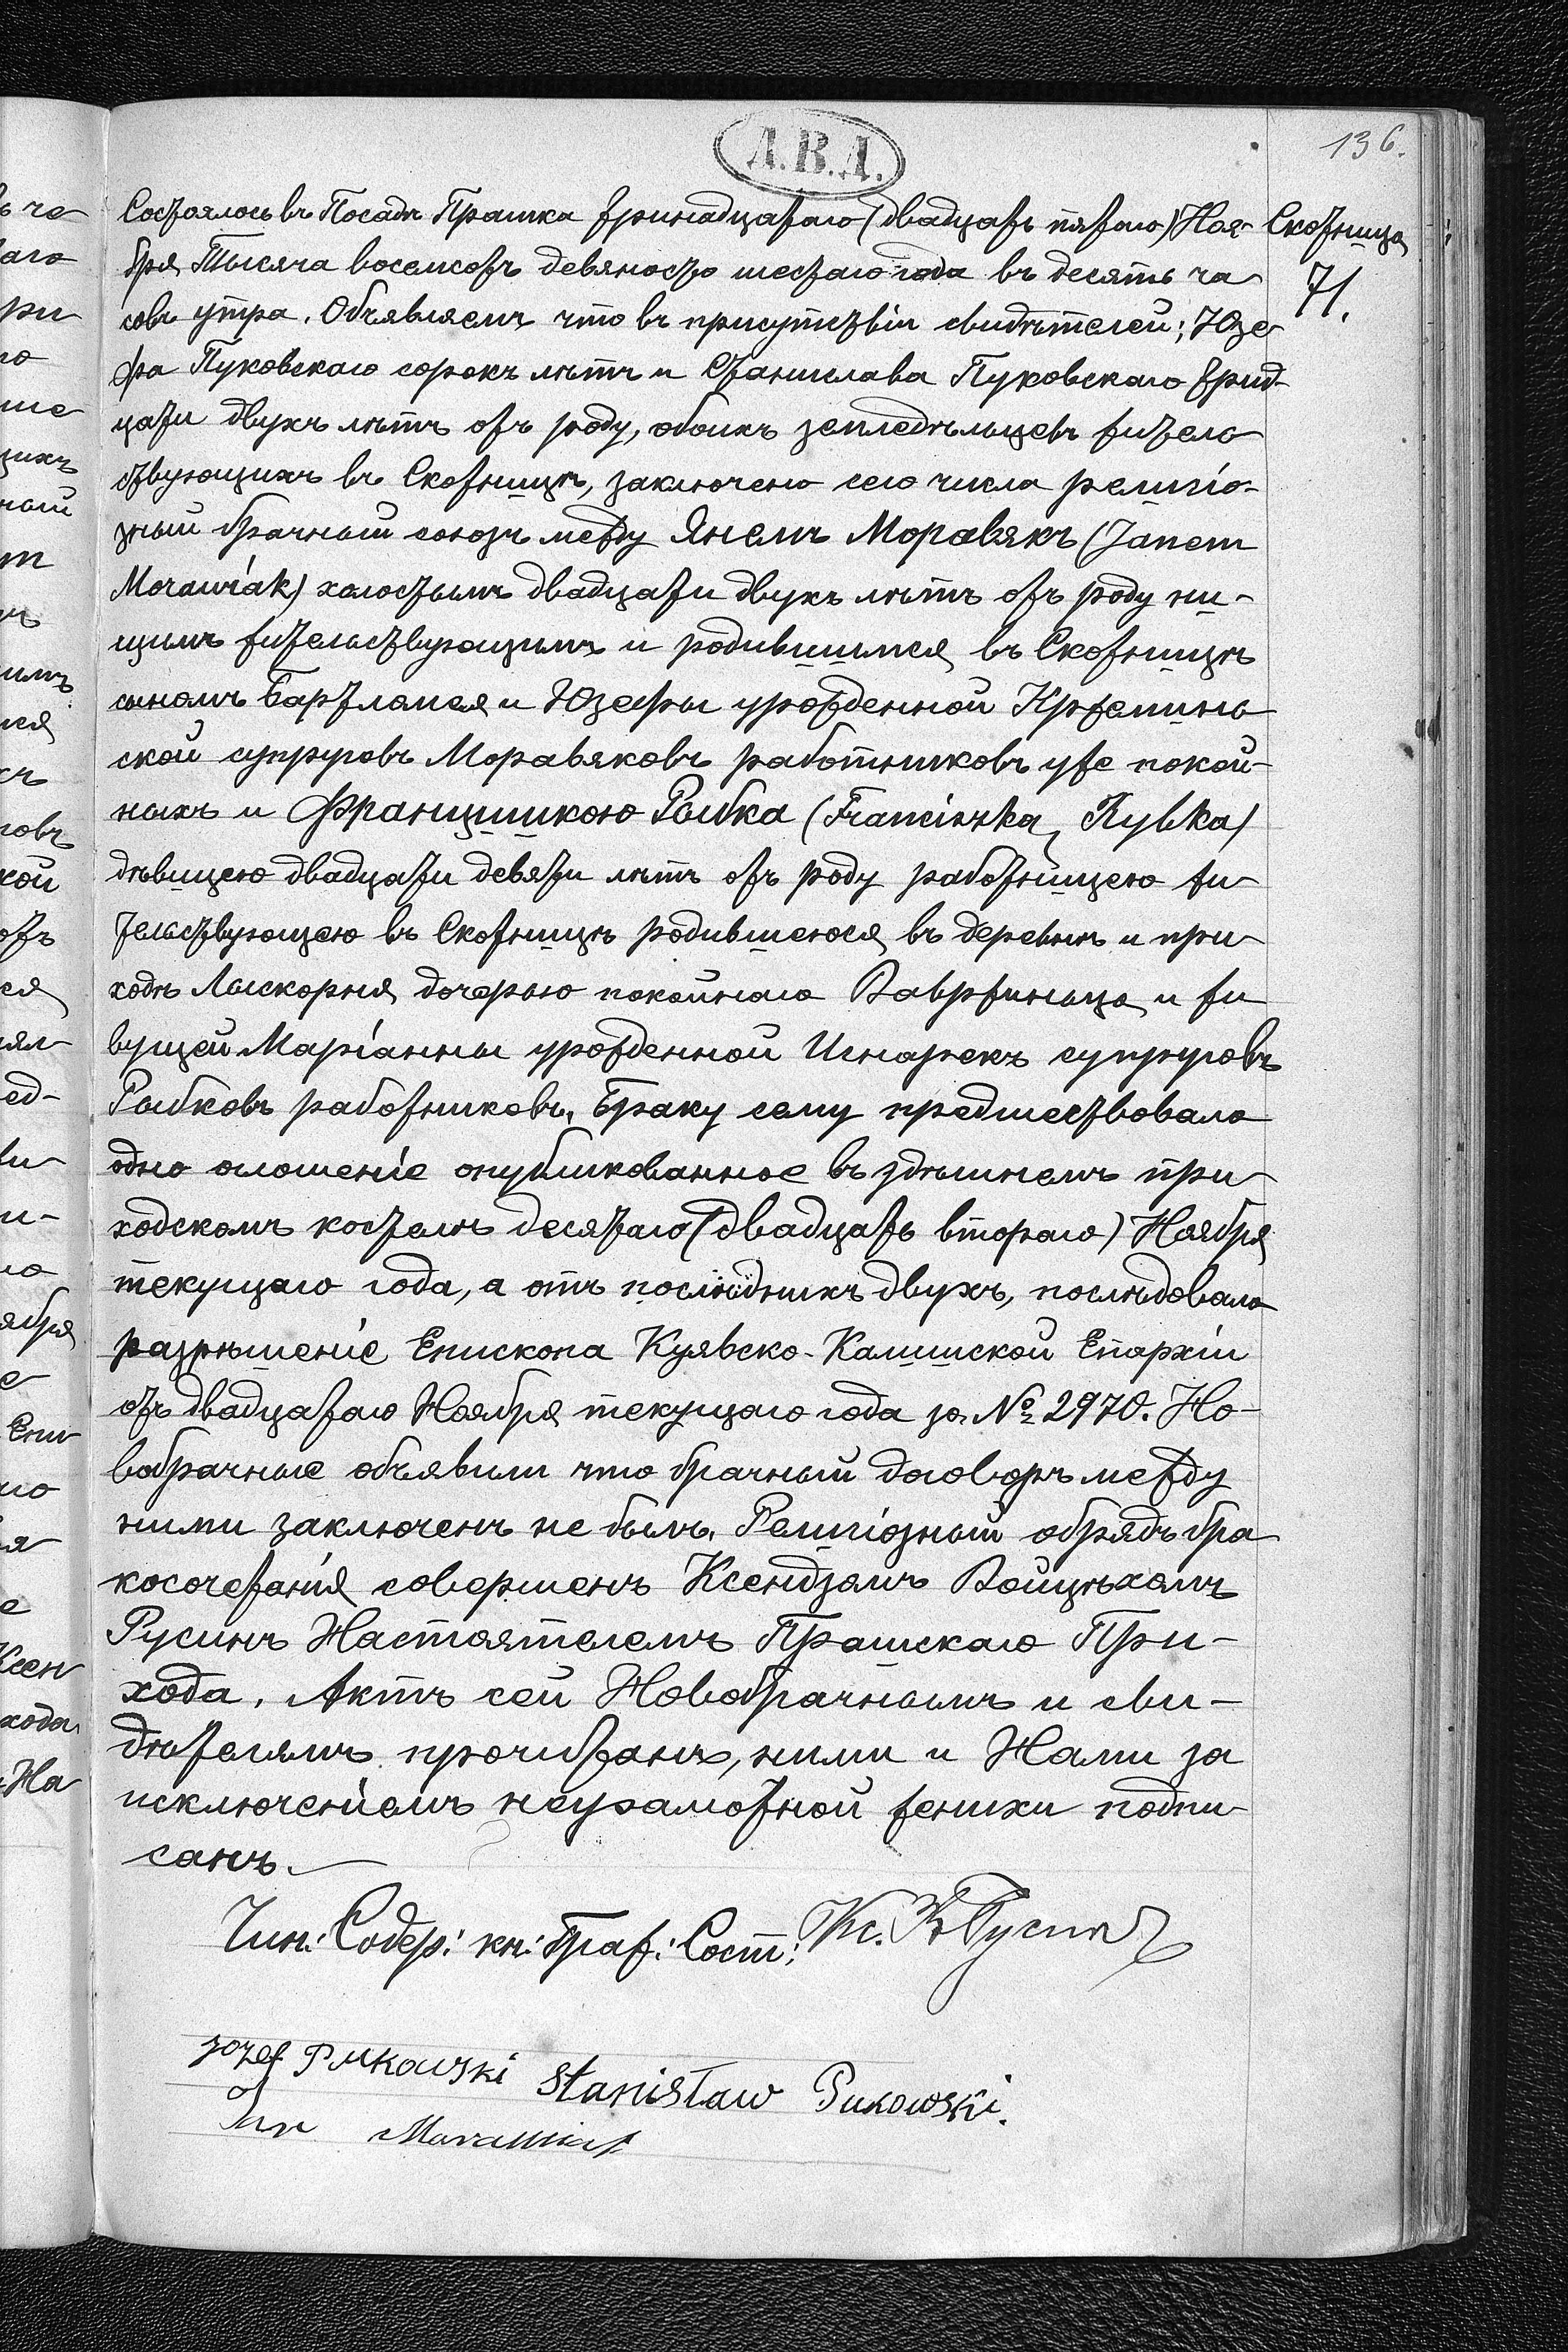 136.
А.В.Д.
Состоялось въ Посадѣ Прашка тринадцатаго (двадцать пятаго) Ноя-
Скотница
71.
бря Тысяча восемсотъ девяносто шестаго года въ десять ча
совъ утра. Объявляемъ что въ присутствіи свидѣтелей: Юзе
фа Пуковскаго сорокъ лѣтъ и Станислава Пуковскаго трид-
цати двухъ лѣтъ отъ роду, обоихъ земледѣльцевъ жителъ
ствующихъ въ Скотницѣ, заключено сего числа религіо-
зный брачный союзъ между Яномъ Моравякъ (Janem
Morawiak) холостымъ двадцати двухъ лѣтъ отъ роду ни-
щимъ жительствующимъ и родившимся въ Скотницѣ
сыномъ Бартломея и Юзефы урожденной Кржеминь
ской супруговъ Моравяковъ работниковъ уже покой-
ныхъ и Францишкою Рыбка (Franciszka Rybka)
дѣвицею двадцати девяти лѣтъ отъ роду работницею жи
тельствующею въ Скотницѣ родившеюся въ деревнѣ и при
ходѣ Лыскорня дочерью покойнаго Вавржиньца и жи
вущей Маріанны урожденной Игнарекъ супруговъ
Рыбковъ работниковъ. Браку сему предшествовало
одно оглошеніе опубликованное въ здѣшнемъ при
ходскомъ костелѣ десятаго (двадцать втораго) Ноября
текущаго года, а отъ послѣднихъ двухъ, послѣдовало
разрѣшеніе Епископа Куявско-Калишской Епархіи
отъ двадцатаго Ноября текущаго года за № 2970. Но-
вобрачные объявили что брачный договоръ между
ними заключенъ не былъ. Религіозный обрядъ бра
косочетанія совершенъ Ксендзомъ Войцѣхомъ
Русинъ Настоятелемъ Прашскаго При-
хода. Актъ сей Новобрачнымъ и сви-
дѣтелямъ прочитанъ, ними и Нами за
исключеніемъ неграмотной женихи подпи
санъ.
Чин: Содер: кн: Граж: Сост: Кс. В Русинъ
Jozef Pukowski Stanisław Pukowski.
Jan Morawiak